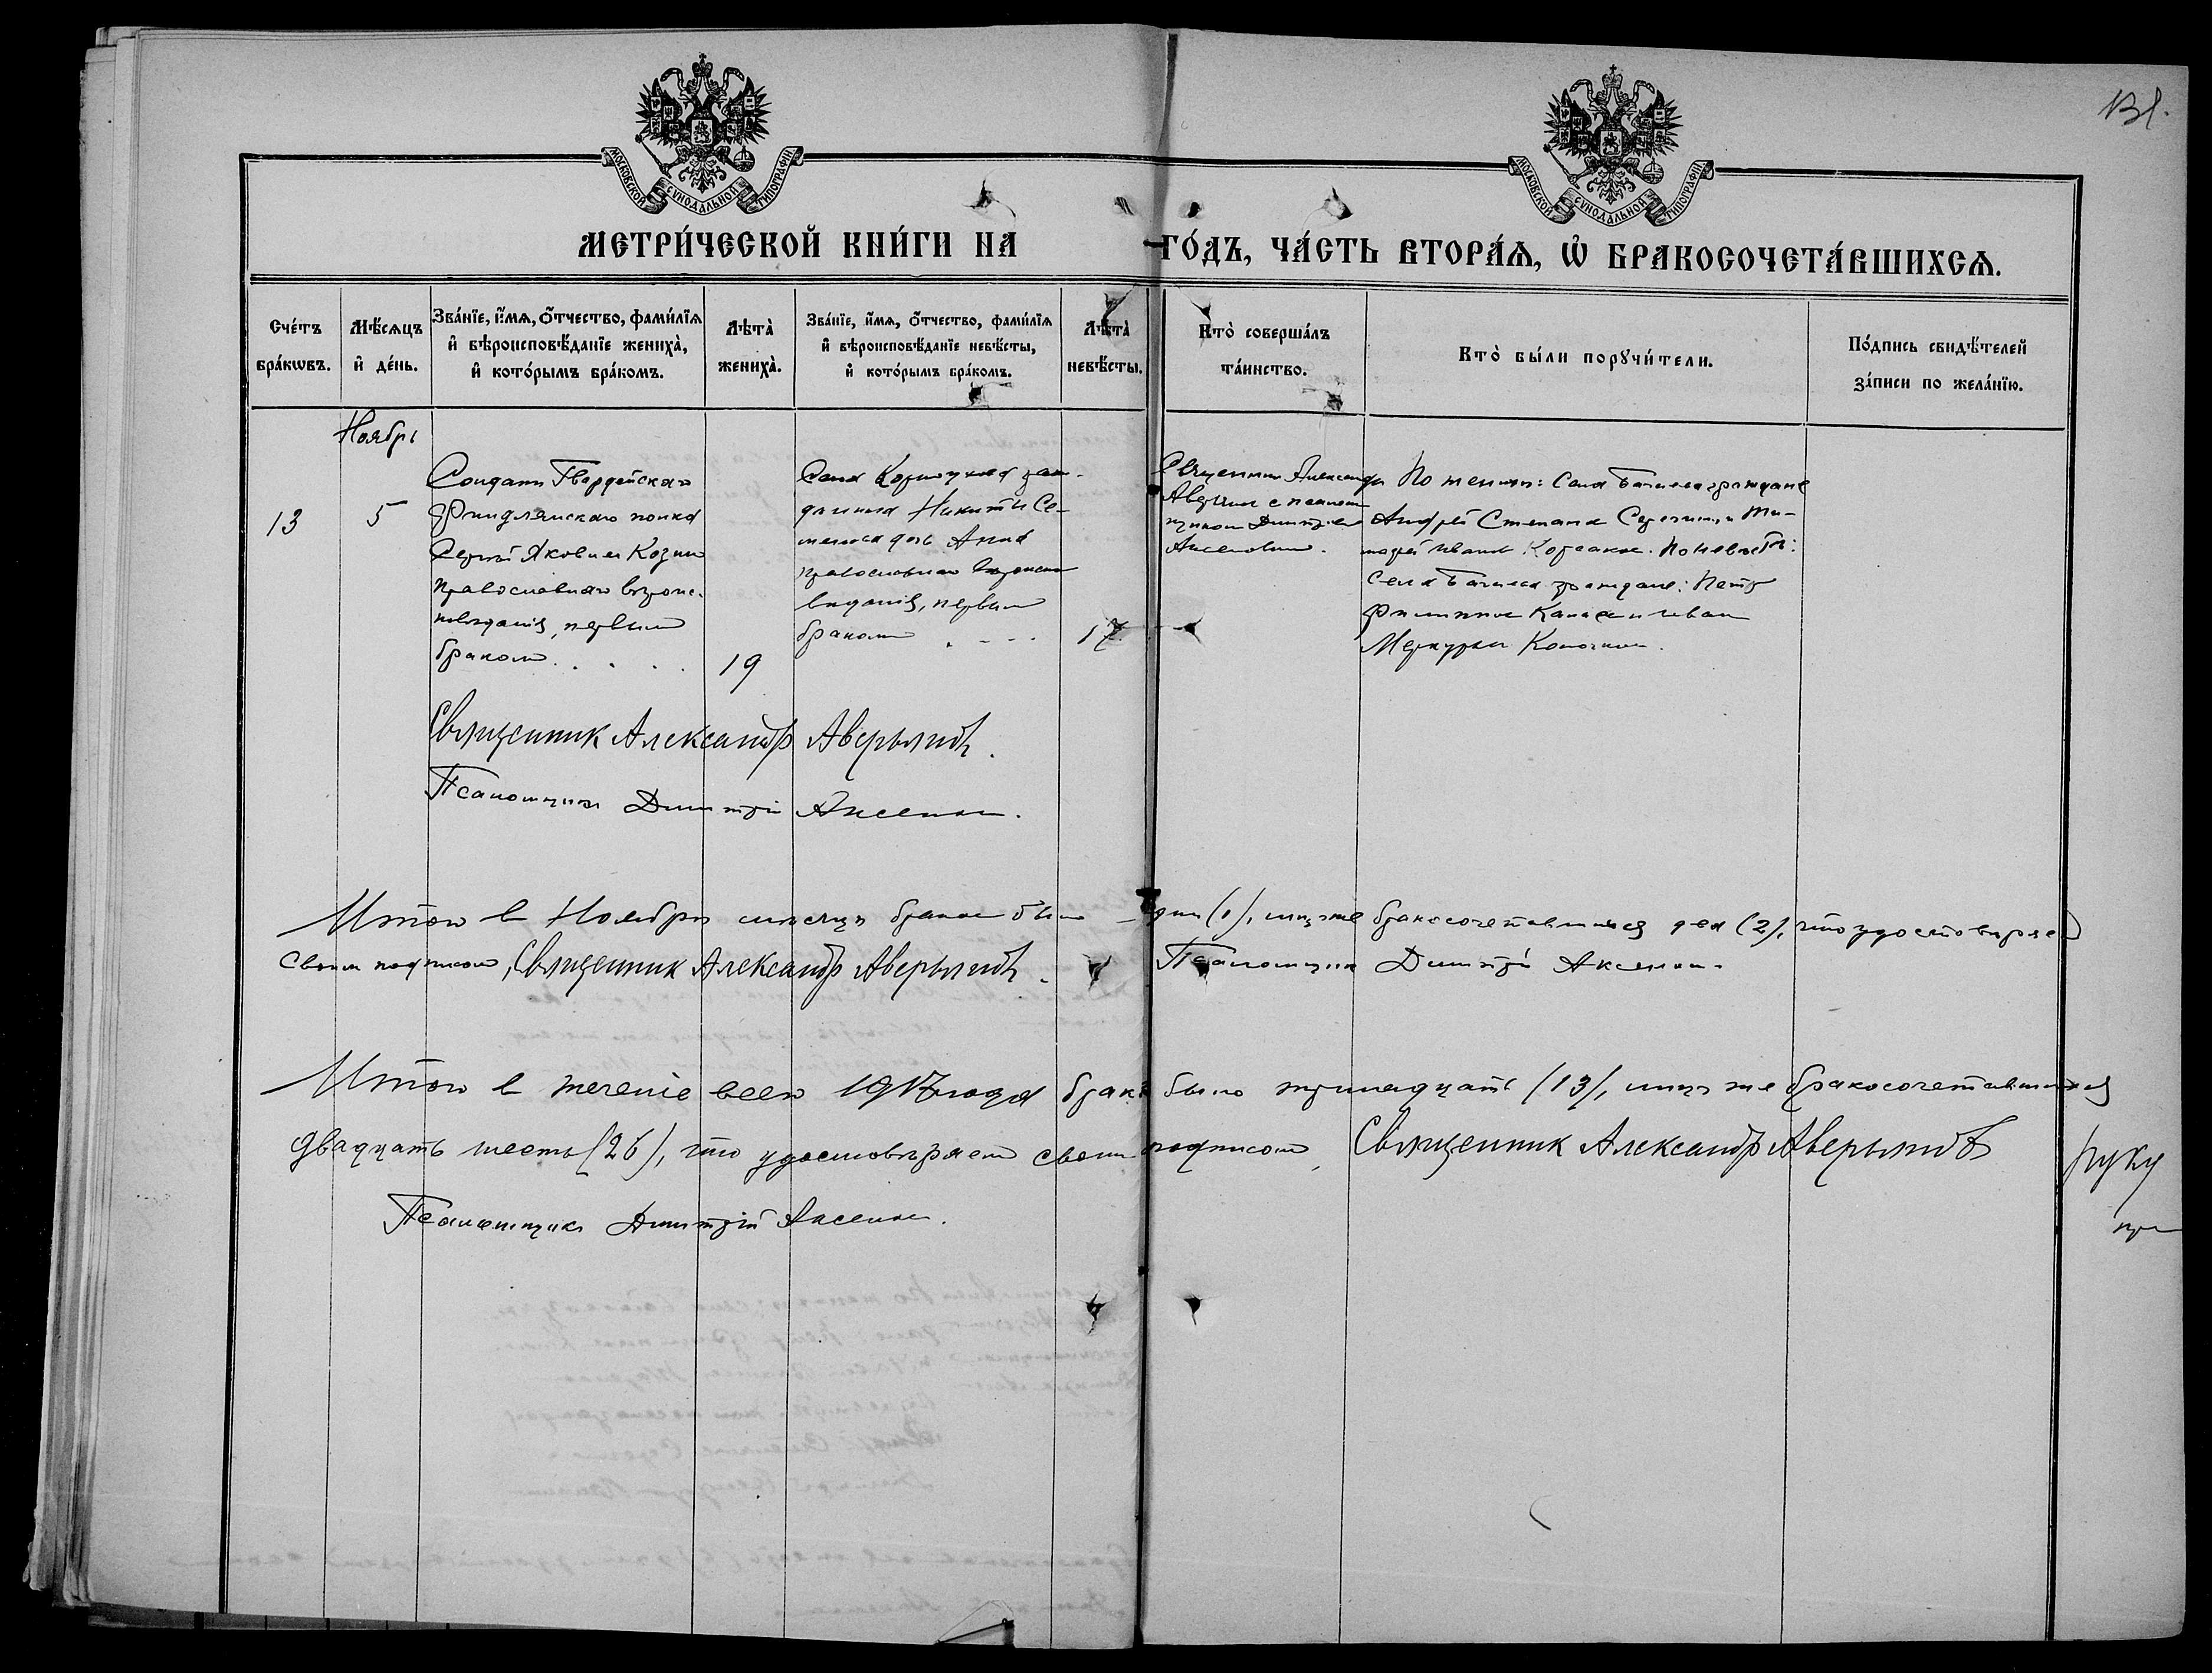 131.
МОСКОВСКОЙ СѴНОДАЛЬНОЙ ТИПОГРАФІИ.
МОСКОВСКОЙ СѴНОДАЛЬНОЙ ТИПОГРАФІИ.
МЕТРИ́ЧЕСКОЙ КНИ́ГИ НА ГО́ДЪ, ЧА́СТЬ ВТОРА́Ѧ, Ѡ҆ БРАКОСОЧЕТА́ВШИХСѦ.
Сче́тъ
бра́кωвъ.
Мѣ́сѧцъ
и҆ де́нь.
Зва́нїе, и҆́мѧ, ѻ҆́тчество, фами́лїѧ
и҆ вѣроисповѣ́данїе жениха̀,
и҆ кото́рымъ бра́комъ.
Лѣта̀
жениха̀.
Зва́нїе, и҆́мѧ, ѻ҆́тчество, фами́лїѧ
и҆ вѣроисповѣ́данїе невѣ́сты,
и҆ кото́рымъ бра́комъ.
Лѣта̀
невѣ́сты.
Кто̀ соверша́лъ
та́инство.
Кто̀ бы́ли порꙋчи́тели.
По́дпись свидѣ́телей
за́писи по жела́нїю.
Ноябрь
13
5
Солдатъ Гвардейскаго
Финдлянскаго полка
Сергѣй Яковлевъ Козинъ
православнаго вѣроис-
повѣданія, первымъ
бракомъ. . . . .
19
Села граж-
данина Никиты Се-
менова дочь Анна
православнаго вѣроиспо
вѣданія, первымъ
бракомъ . - - -
17
Священникъ Александръ
Аверьяновъ с псаломщ
щикомъ Димитріемъ
Аксеновымъ.
По женихѣ: Села граждане
Андрей Степановъ и Ти-
мофей Ивановъ По невѣстѣ:
Села граждане: Петръ
Филипповъ и Иванъ
Меркурьевъ
Священникъ Александръ Аверьяновъ.
Псаломщикъ Димитрій Аксеновъ.
Итого въ Ноябрѣ мѣсяцѣ браковъ былъ одинъ (1), лицъ же бракосочетавшихся два (2), что удостовѣряемъ
своимъ подписомъ, Священникъ Александръ Аверьяновъ. Псаломщикъ Димитрій Аксеновъ.
Итого въ теченіе всего 1917 года браковъ было тринадцать (13), лицъ же бракосочетавшихся
двадцать шесть (26), что удостовѣряемъ своимъ подписомъ, Священникъ Александръ Аверьяновъ
руку
Псаломщикъ Димитрій Аксеновъ.